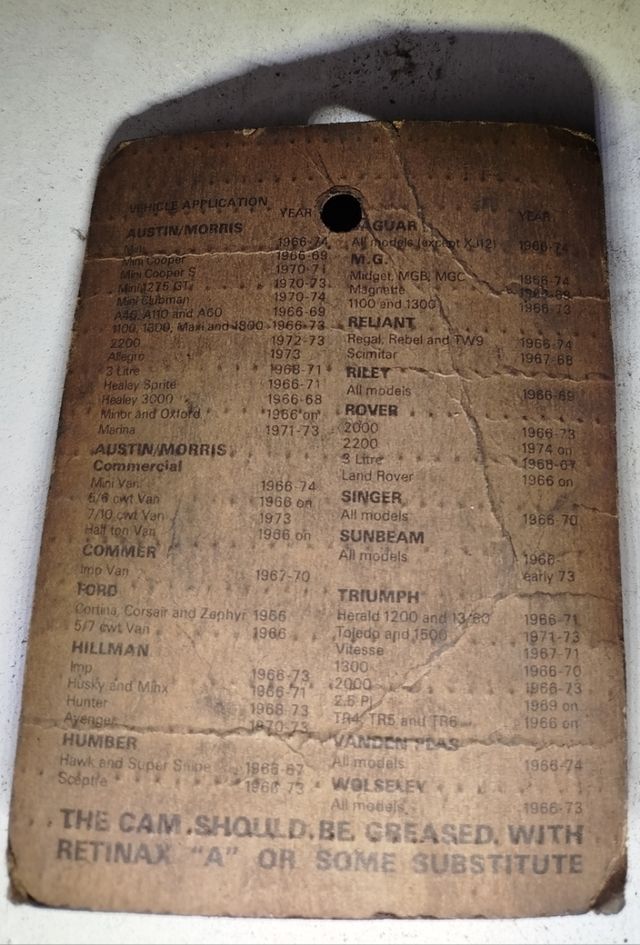 VEHICLE APPLICATION
YEAR
AUSTIN/MORRIS
Mini 1966-74
Mini Cooper 1966-69
Mini Cooper S 1970-71
Mini 1275 GT 1970-73
Mini Clubman 1970-74
A40, A110 and A60 1966-69
1100, 1300, Maxi and 1800 1966-73
2200 1972-73
Allegro 1973
3 Litre 1968-71
Healey Sprite 1966-71
Healey 3000 1966-68
Minor and Oxford 1966 on
Marina 1971-73
AUSTIN/MORRIS
Commercial
Mini Van 1966-74
5/6 cwt Van 1966 on
7/10 cwt Van 1973
Half ton Van 1966 on
COMMER
Imp Van 1967-70
FORD
Cortina, Corsair and Zephyr 1966
5/7 cwt Van 1966
HILLMAN
Imp 1966-73
Husky and Minx 1966-71
Hunter 1968-73
Avenger 1970-73
HUMBER
Hawk and Super Snipe 1966-67
Sceptre 1966-73
YEAR
JAGUAR
All models (except XJ12) 1966-74
M.G.
Midget, MGB, MGC 1966-74
Magnette 1966-69
1100 and 1300 1966-73
RELIANT
Regal, Rebel and TW9 1966-74
Scimitar 1967-68
RILEY
All models 1966-69
ROVER
2000 1966-73
2200 1974 on
3 Litre 1966-67
Land Rover 1966 on
SINGER
All models 1966-70
SUNBEAM
All models 1966-
early 73
TRIUMPH
Herald 1200 and 13/60 1966-71
Toledo and 1500 1971-73
Vitesse 1967-71
1300 1966-70
2000 1966-73
2.5 PI 1969 on
TR4, TR5 and TR6 1966 on
VANDEN PLAS
All models 1966-74
WOLSELEY
All models 1966-73
THE CAM SHOULD BE GREASED WITH
RETINAX "A" OR SOME SUBSTITUTE